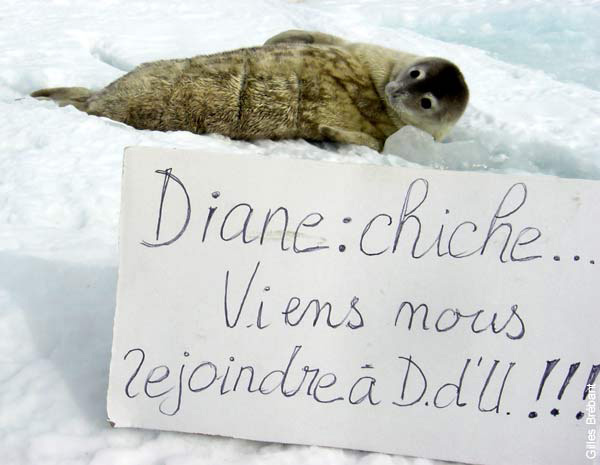 Diane: chiche...
Viens nous
rejoindre à D.d'U.!!!
Gilles Brébant